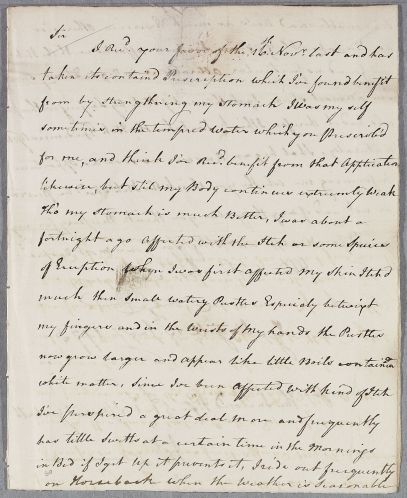 Sir
I Recd. your favor of the 16th. Novr. last and has
taken its containd Prescription which I've found benefit
from by strengthning my Stomach I was my self
sometimes in the tempred water which you Prescribed
for me, and think I've Recd. benefit from that Application
likewise, but still my Body continues extremly Weak
Tho my Stomach is much Better, I was about a
fortnight ago Affected with the Itch or some Speices
of Eruption when I was first affected my Skin Itchd
much then Small watry Pustles Especialy betwixt
my fingers and in the Wrists of my hands the Pustles
now grow larger and appear like little Boils containing
white matter, since I've been affected with kind of Itch
I've perspired a great deal more and frequently
has little Swets at a certain time in the Mornings
in Bed if I get up it prevents it, I ride out frequently
on Horseback when the weather is Seasonable